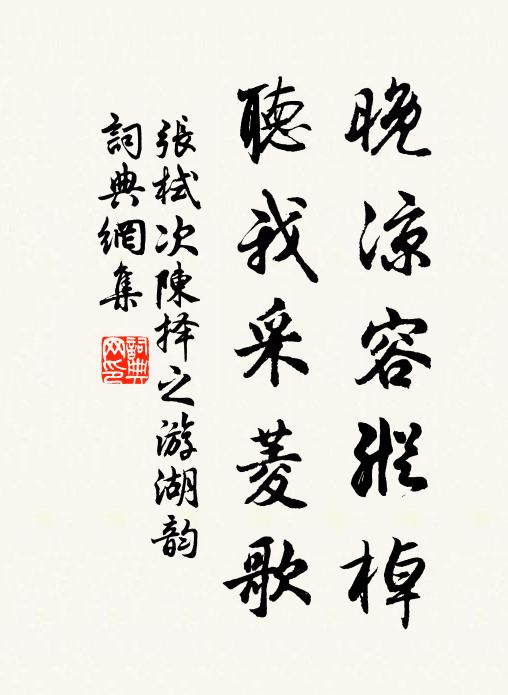 晚凉容縱棹
聽我采菱歌
張栻次陳择之游湖韵
詞典網集
詞典
网印